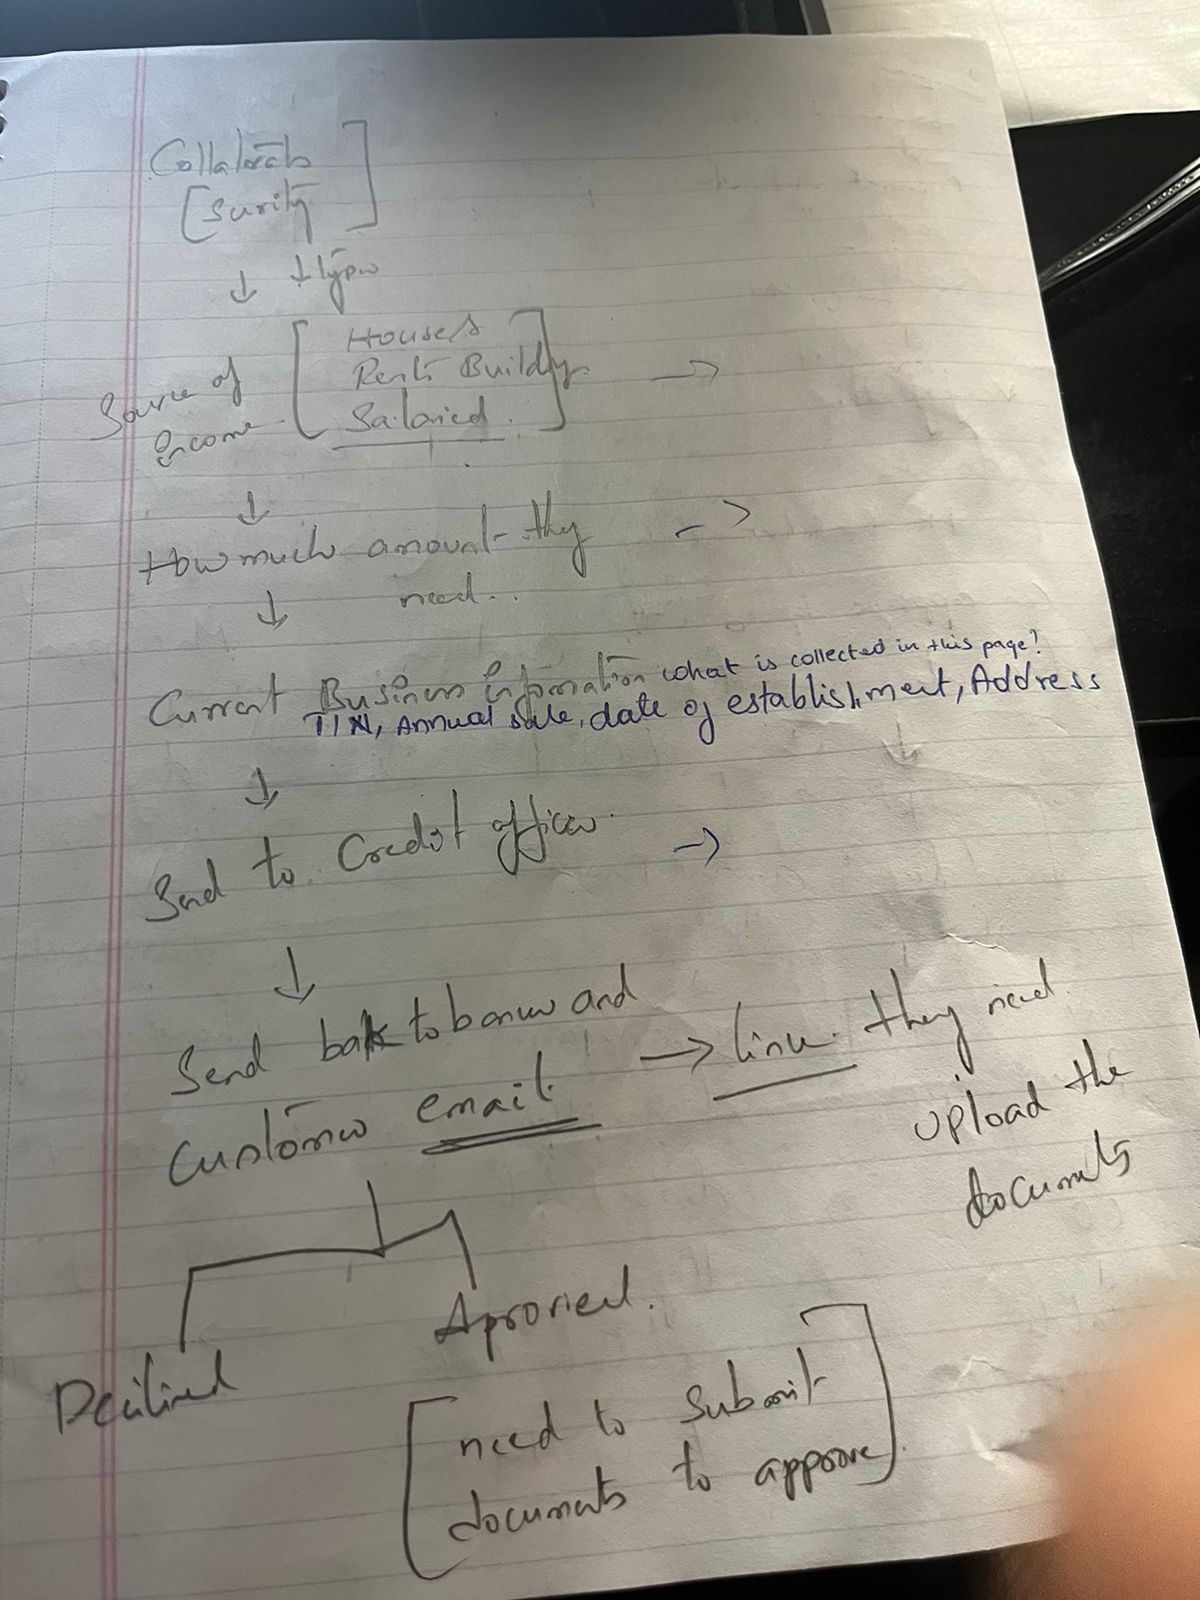 Collaterals
[Surity]
↓ ↓ types
Source of
Income
[Houses
Rents Buildgs.
Salaried.] →
↓
How much amount they →
need..
↓
Current Business information what is collected in this page?
TIN, Annual sale, date of establishment, Address
↓ ↓
Send to Credit officer. →
↓
Send back to borrower and
customer email → link they need
upload the
documents
Declined
Aproved.
[need to submit
documents to approve].